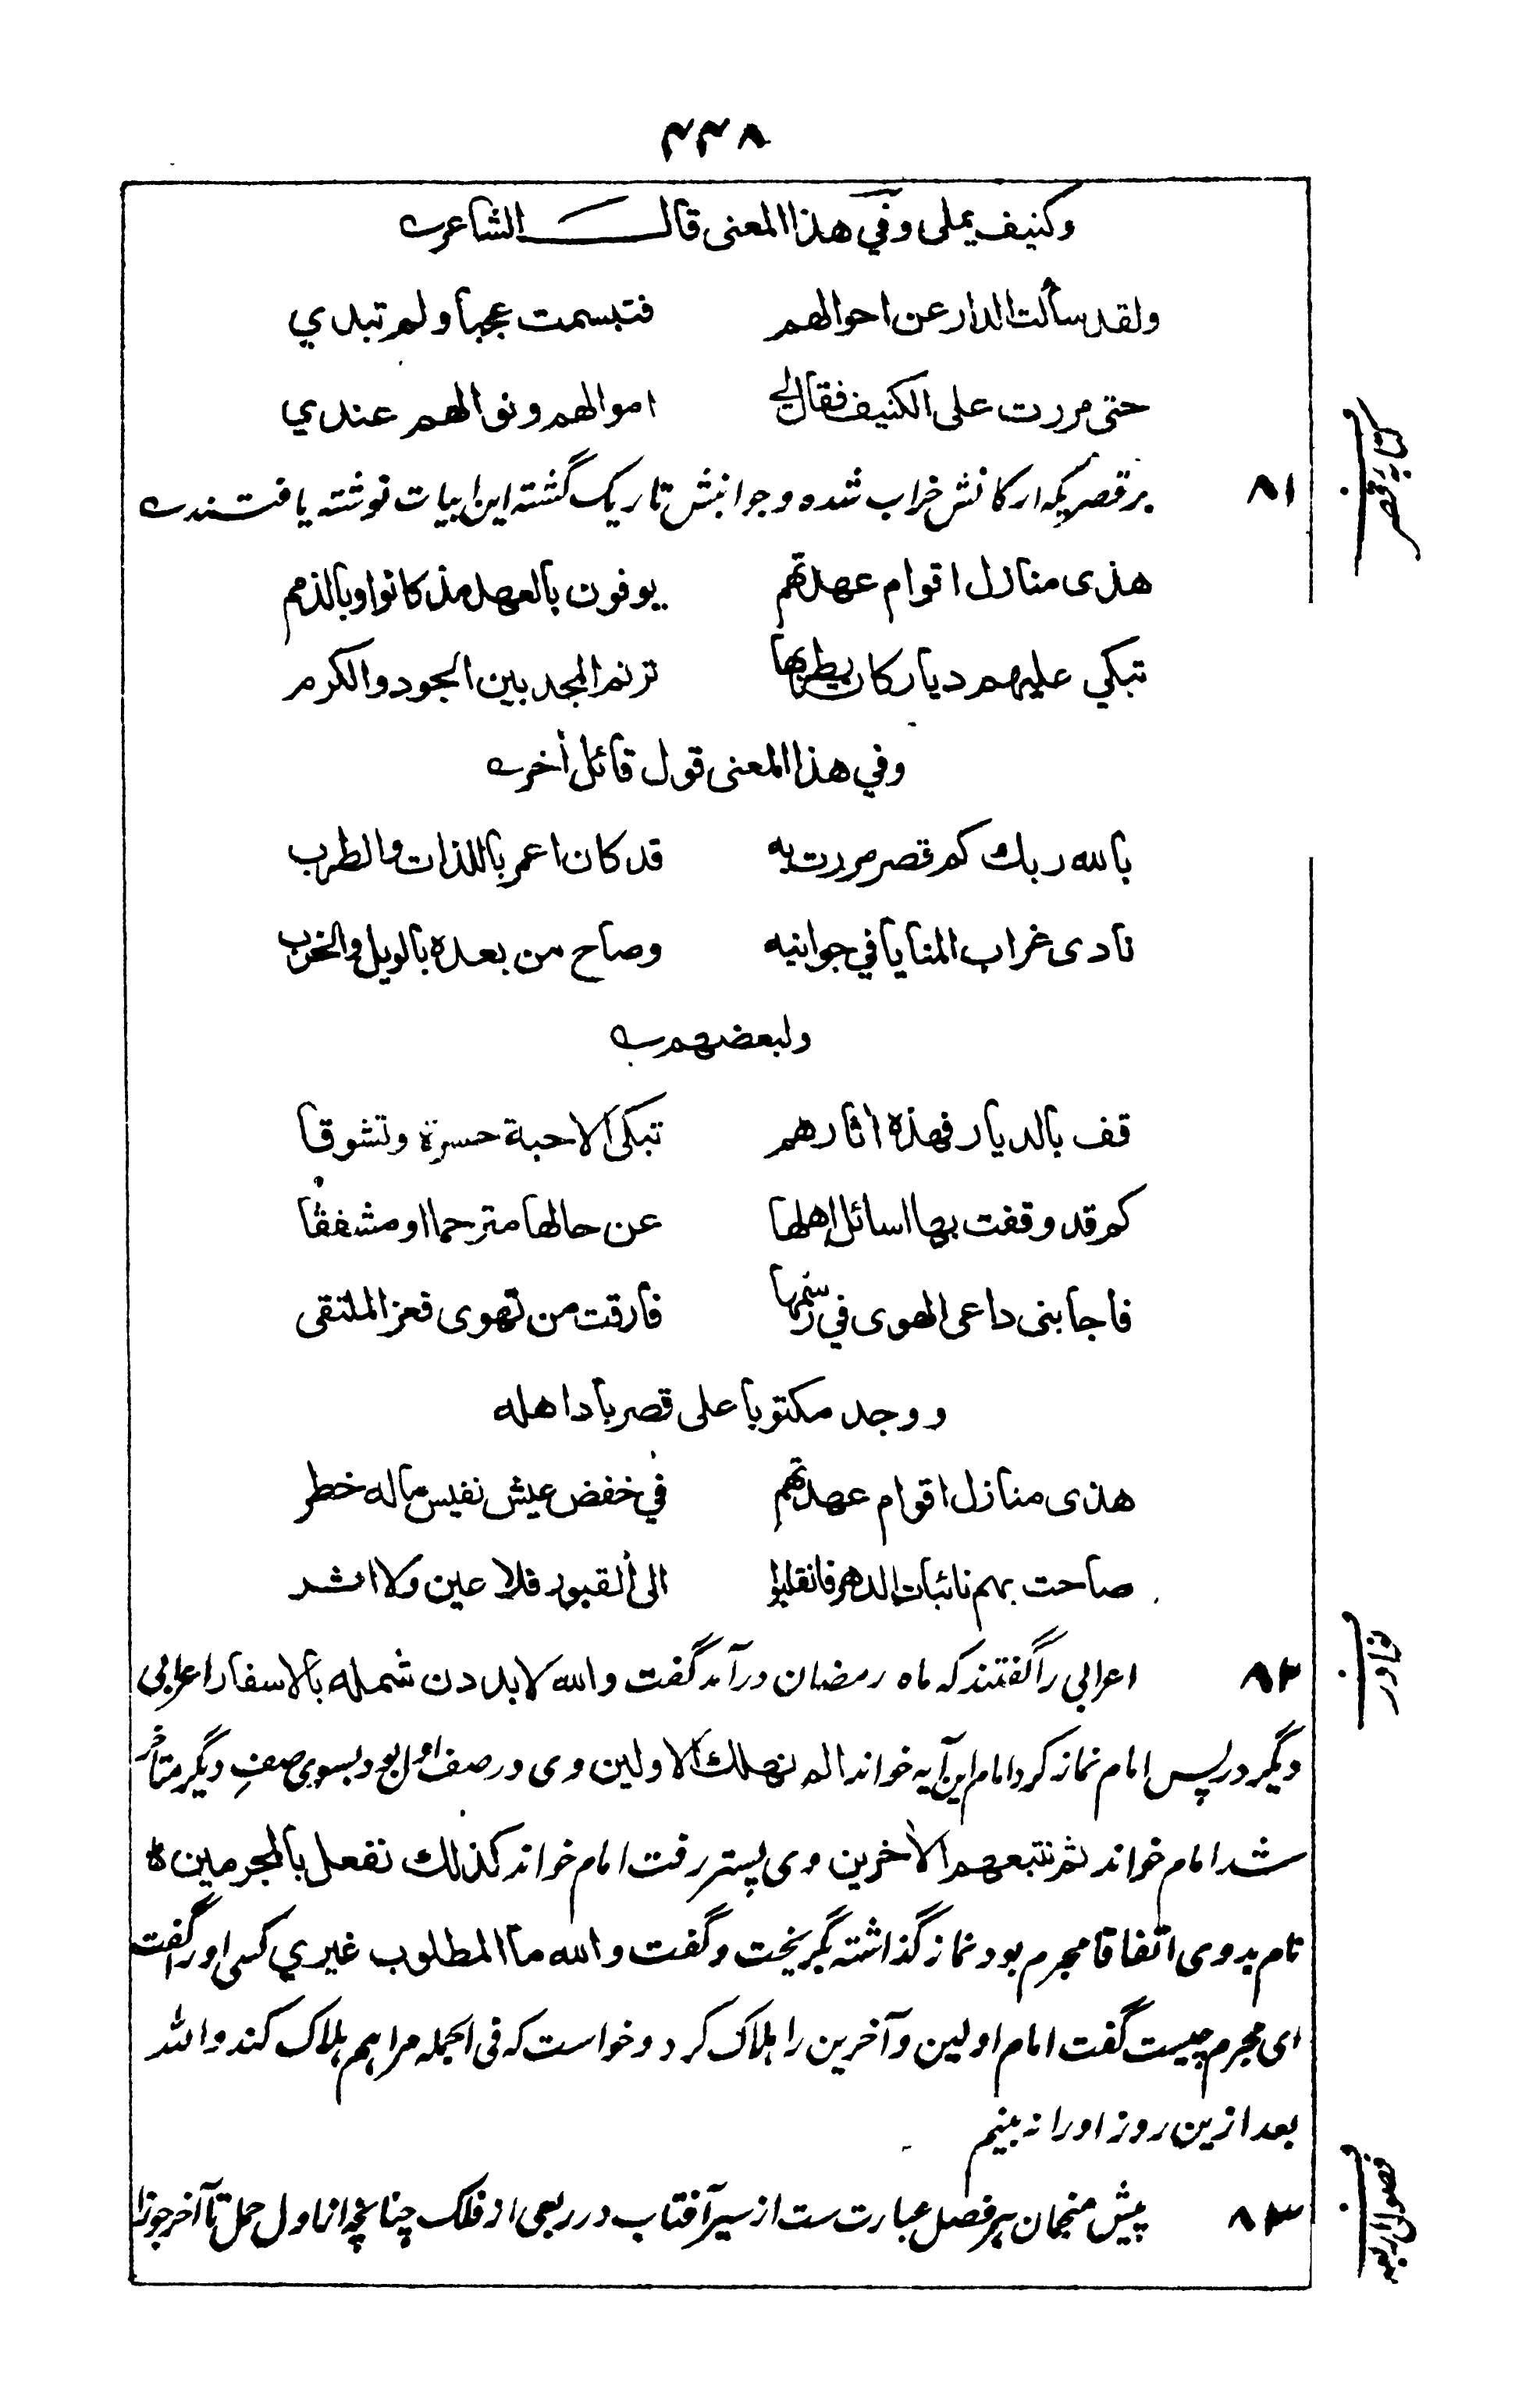 ۴۴۸
وكنيف يملى وفي هذا المعنى قال الشاعر
ولقد سألت الدار عن احوالهم فتبسمت عجبا ولم تبدي
حتى مررت على الكنيف فقال لي اموالهم ونوالهم عندي
کتابۂ قصر
۸۱ بر قصریکه ارکانش خراب شده و جوانبش تاریک گشته این ابیات نوشته یافتند
هذى منازل اقوام عهدتهم يوفون بالعهد مذ كانوا وبالذمم
تبكي عليهم ديار كان يطربها ترنم المجد بين الجود والكرم
وفي هذا المعنى قول قائل أخر
بالله ربك كم قصر مررت به قد كان اعمر باللذات والطرب
نادى غراب المنايا في جوانبه وصاح من بعده بالويل والخرب
ولبعضهم
قف بالديار فهذه أثارهم تبكى الاحبة حسرة وتشوقا
كم قد وقفت بها اسائل اهلها عن حالها مترحما او مشفقا
فاجابنى داعى الهوى في رسمها فارقت من تهوى فعز الملتقى
ووجد مكتوبا على قصر باد اهله
هذى منازل اقوام عهدتهم في خفض عيش نفيس ماله خطر
صاحت بهم نائبات الدهر فانقلبوا الى القبور فلا عين ولا اثر
نوادر
۸۲ اعرابی را گفتند که ماه رمضان درآمد گفت والله لابددن شمله بالاسفار اعرابی
دیگر در پس امام نماز کرد امام این آیه خواند الم نهلك الاولين وی در صف اول بود بسوی صفِ دیگر متأخر
شد امام خواند ثم نتبعهم الأخرين وی پستر رفت امام خواند كذلك نفعل بالمجرمين ه
نام بدوی اتفاقا مجرم بود نماز گذاشته بگریخت و گفت والله ما المطلوب غيري کسی او را گفت
ای مجرم چیست گفت امام اولین و آخرین را هلاک کرد و خواست که فی الجمله مرا هم هلاک کند والله
بعد ازین روز او را نه بینم
فصول اربعه
۸۳ پیش منجمان هر فصل عبارت ست از سیر آفتاب در ربعی از فلک چنانچه از اول حمل تا آخر جوزا